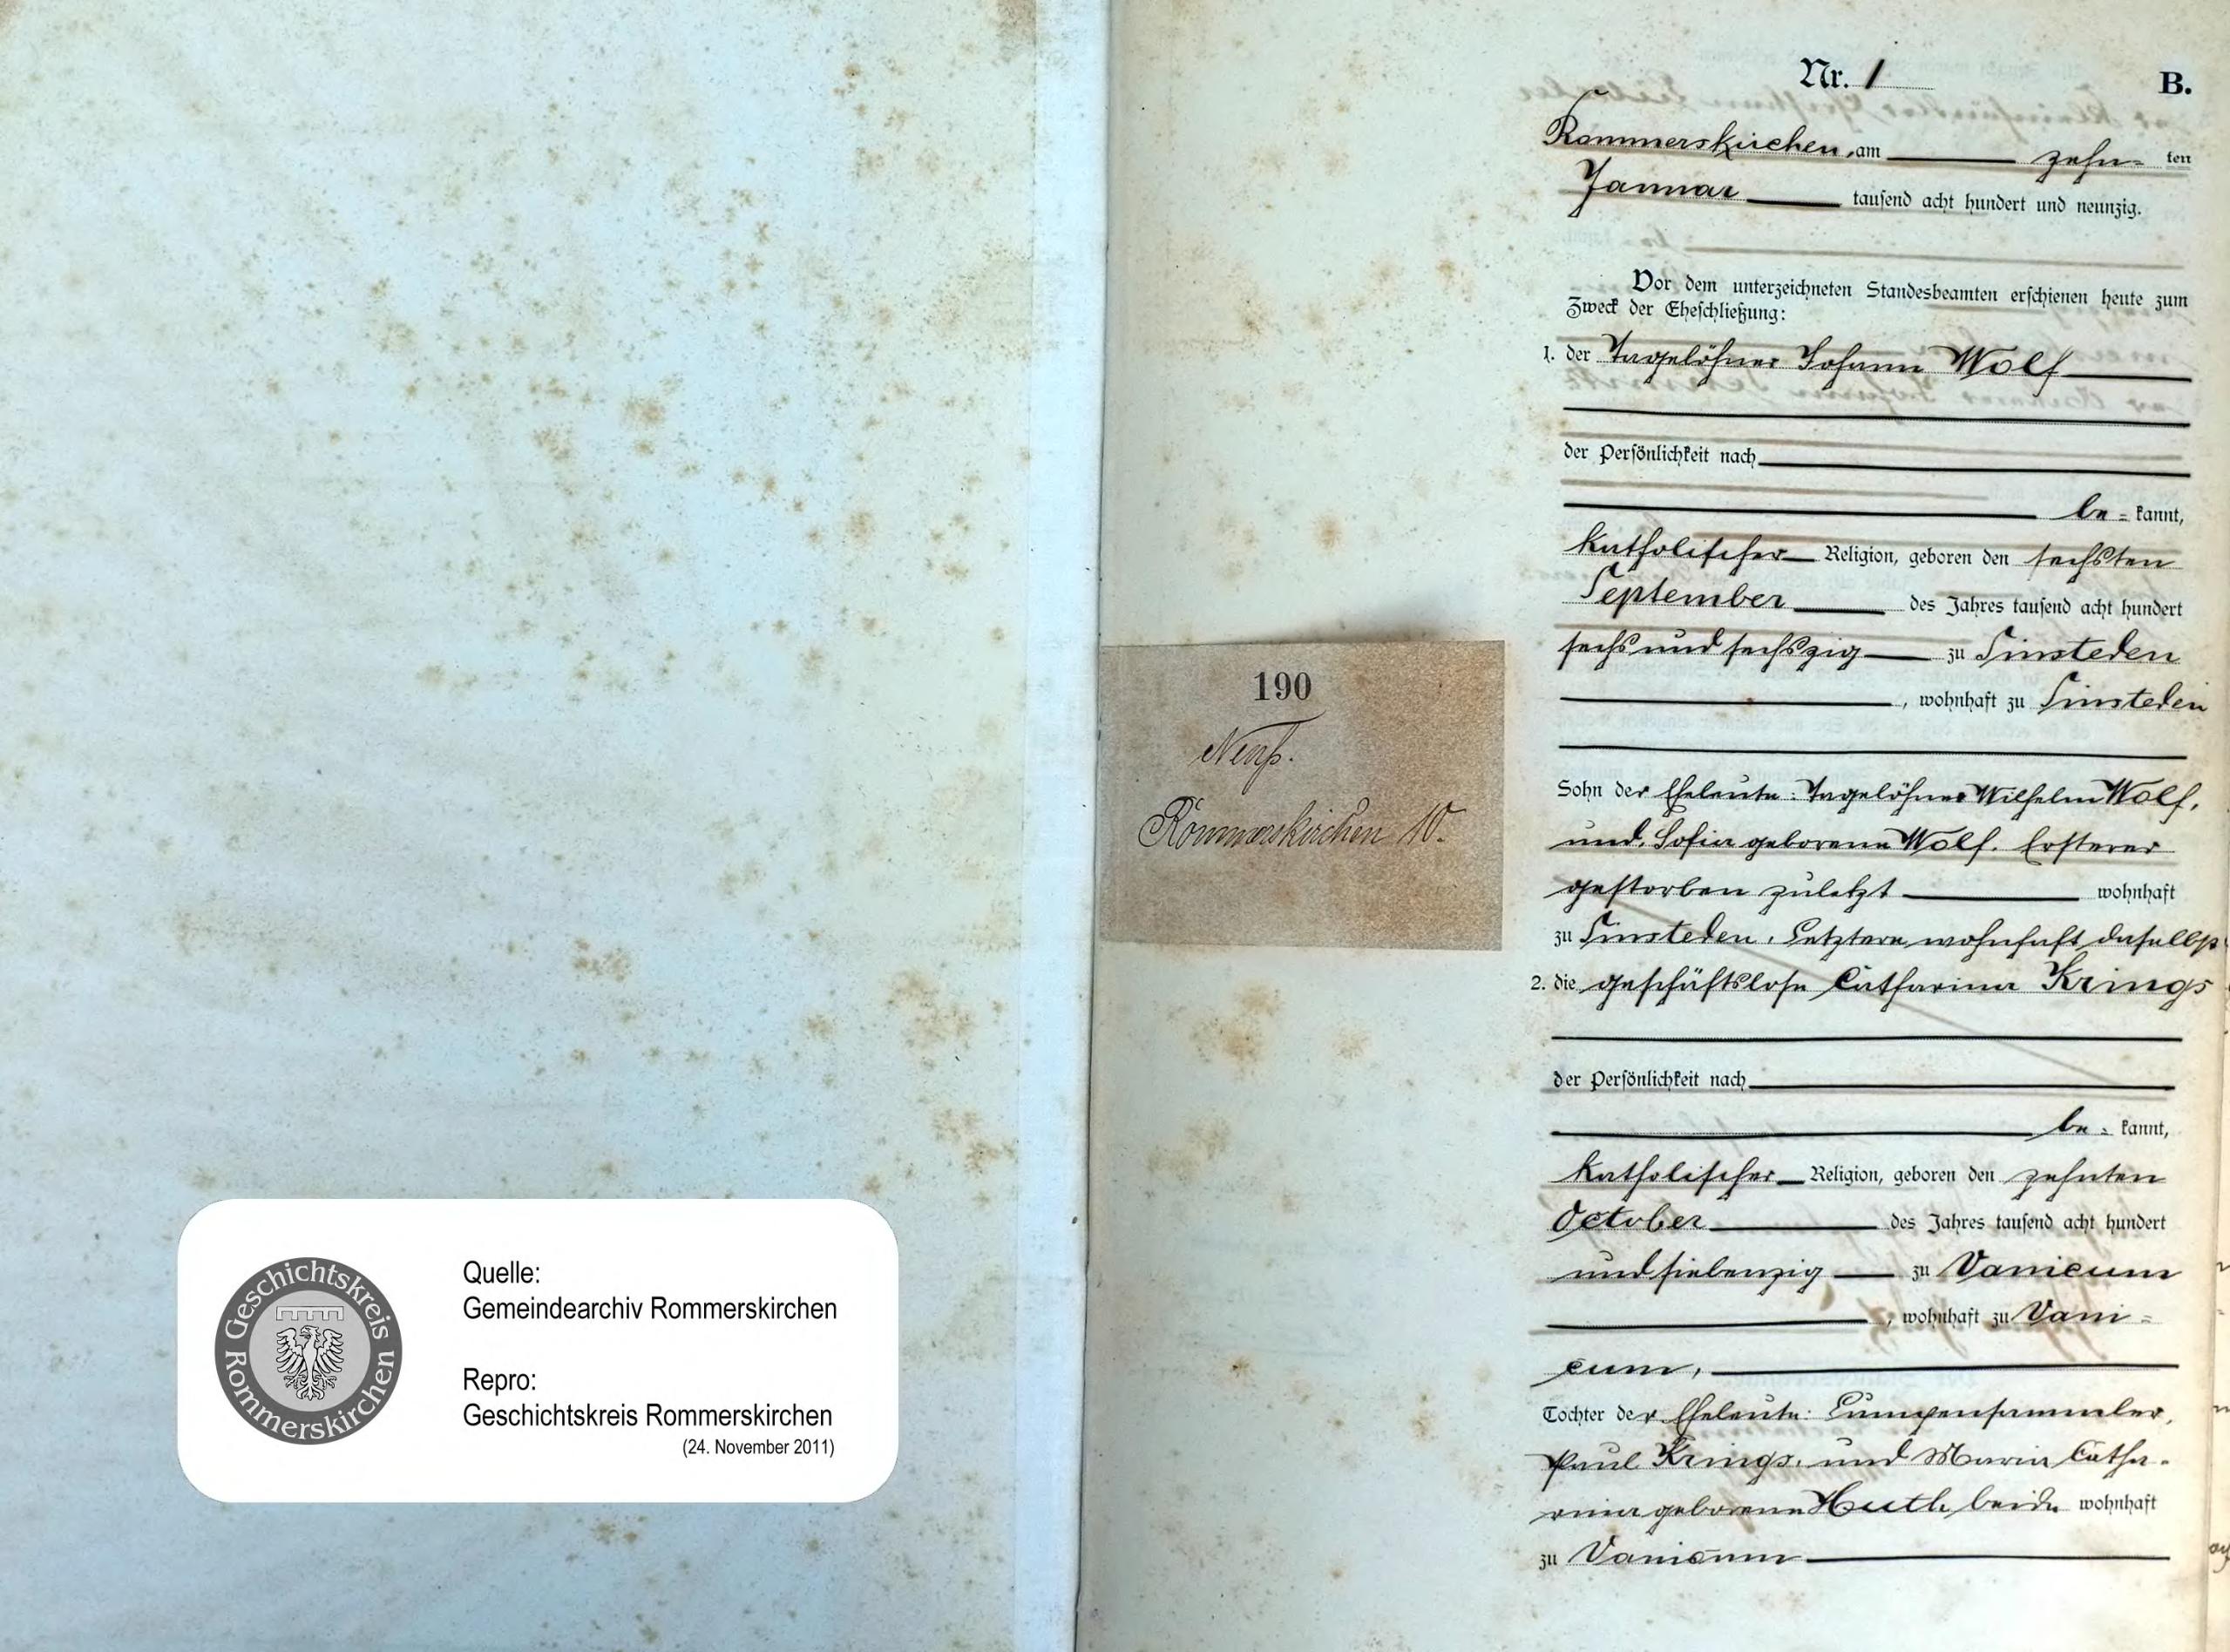 Nr. 1
B.
Rommerskirchen, am zehn= ten
Januar tausend acht hundert und neunzig.
Vor dem unterzeichneten Standesbeamten erschienen heute zum
Zweck der Eheschließung:
1. der Tagelöhner Johann Wolf
der Persönlichkeit nach
be= kannt,
katholischer Religion, geboren den sechsten
September des Jahres tausend acht hundert
sechs und sechszig zu Sinsteden
, wohnhaft zu Sinsteden
Sohn der Eheleute: Tagelöhner Wilhelm Wolf,
und Sofia geborene Wolf. Ersterer
gestorben zuletzt wohnhaft
zu Sinsteden, Letztere wohnhaft daselbst
2. die geschäftslose Catharina Krings
der Persönlichkeit nach
be= kannt,
katholischer Religion, geboren den zehnten
October des Jahres tausend acht hundert
und siebenzig zu Vanicum
, wohnhaft zu Vani=
cum,
Tochter der Eheleute: Lumpensammler,
Paul Krings, und Maria Catha-
rina geborene Huth beide wohnhaft
zu Vanicum
190
Neuß.
Rommerskirchen 10.
Geschichtskreis
Rommerskirchen
Quelle:
Gemeindearchiv Rommerskirchen
Repro:
Geschichtskreis Rommerskirchen
(24. November 2011)